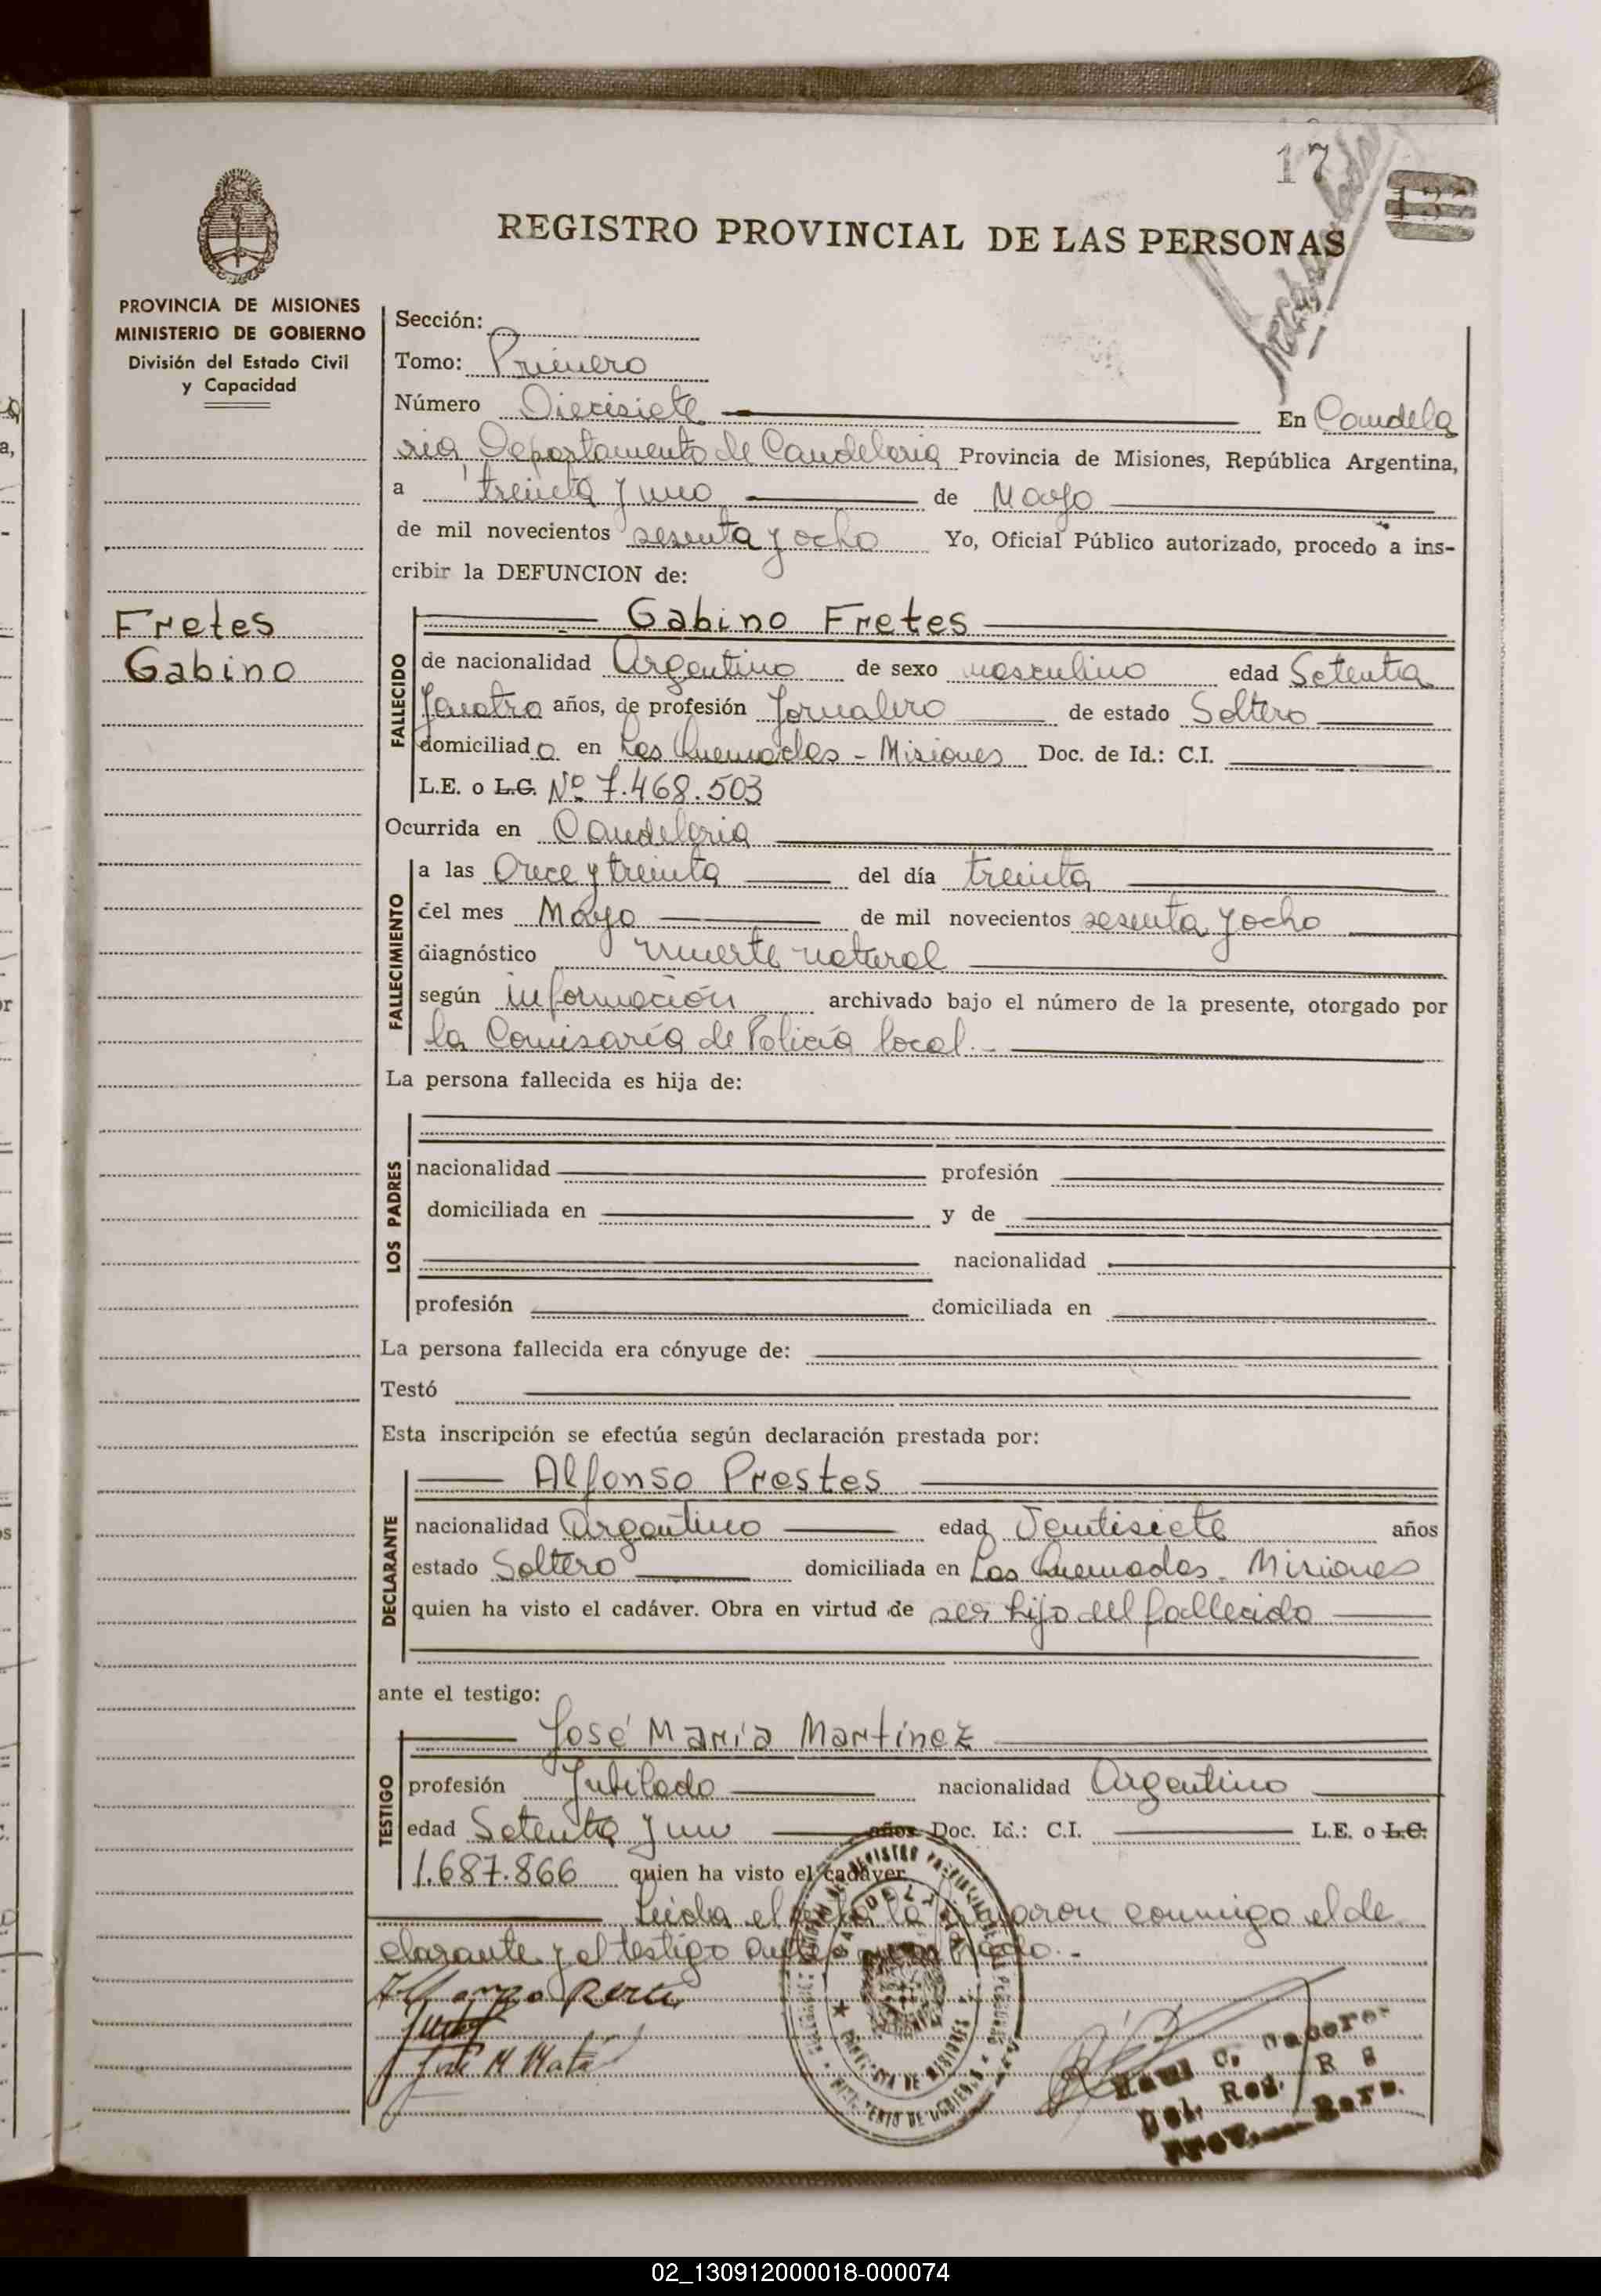 17
REGISTRO PROVINCIAL DE LAS PERSONAS
PROVINCIA DE MISIONES
MINISTERIO DE GOBIERNO
División del Estado Civil
y Capacidad
Fretes
Gabino
Sección:
Tomo: Primero
Número Diecisiete En Candela
ria Departamento de Candelaria Provincia de Misiones, República Argentina,
a treinta y uno de Mayo
de mil novecientos sesenta y ocho Yo, Oficial Público autorizado, procedo a ins-
cribir la DEFUNCION de:
FALLECIDO
Gabino Fretes
de nacionalidad Argentino de sexo masculino edad Setenta
y cuatro años, de profesión Jornalero de estado Soltero
domiciliado en Las Quemadas - Misiones Doc. de Id.: C.I.
L.E. o L.C. Nº 7.468.503
Ocurrida en Candelaria
FALLECIMIENTO
a las Once y treinta del día treinta
del mes Mayo de mil novecientos sesenta y ocho
diagnóstico muerte natural
según información archivado bajo el número de la presente, otorgado por
la Comisaría de Policía local.-
La persona fallecida es hija de:
LOS PADRES
nacionalidad profesión
domiciliada en y de
nacionalidad
profesión domiciliada en
La persona fallecida era cónyuge de:
Testó
Esta inscripción se efectúa según declaración prestada por:
DECLARANTE
Alfonso Prestes
nacionalidad Argentino edad Ventisiete años
estado Soltero domiciliada en Las Quemadas - Misiones
quien ha visto el cadáver. Obra en virtud de ser hijo del fallecido
ante el testigo:
TESTIGO
José María Martínez
profesión Jubilado nacionalidad Argentino
edad Setenta y uno años Doc. Id.: C.I. L.E. o L.C.
1.687.866 quien ha visto el cadáver.
Leída el acta la firmaron conmigo el de
clarante y el testigo
José M
PROVINCIA DE MISIONES
MINISTERIO DE GOBIERNO
Raul C.
Del. Reg.
02_130912000018-000074